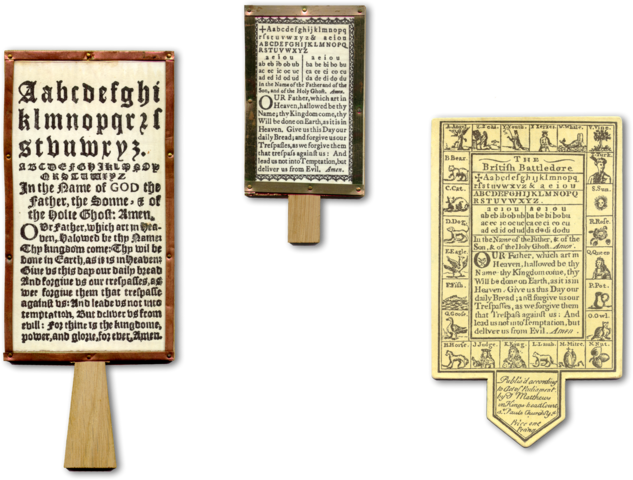 Aabcdefghi
klmnopqrzſ
stvuwxyz.
In the Name of GOD the
Father, the Sonne, & of
the Holie Ghost: Amen.
OUr Father, which art in Hea-
ven, Halowed be thy Name:
Thy kingdom come: Thy wil be
done in Earth, as it is in Heaven:
Give us this day our daily bread
And forgive us our trespasses, as
wee forgive them that trespasse
against us: And leade us not into
temptation, But deliver vs from
evill: For thine is the kingdome,
power, and glorie, for ever, Amen.
✢Aabcdefghijklmnopq
rſstuvwxyz& aeiou
ABCDEFGHIJKLMNOPQ
RSTUVWXYZ
a e i o u | a e i o u
ab eb ib ob ub | ba be bi bo bu
ac ec ic oc uc | ca ce ci co cu
ad ed id od ud | da de di do du
In the Name of the Father and of the
Son, and of the Holy Ghost. Amen.
OUR Father, which art in
Heaven, hallowed be thy
Name; thy Kingdom come, thy
Will be done on Earth, as it is in
Heaven. Give us this Day our
daily Bread; and forgive us our
Treſpaſſes, as we forgive them
that treſpaſs againſt us: And
lead us not into Temptation, but
deliver us from Evil. Amen.
B.Bear.
C.Cat.
D.Dog.
E.Eagle
F.Fiſh.
G.Gooſe.
H.Horſe.
J.Judge.
K.King.
L.Lamb.
M.Mitre.
N.Nut.
O.Owl.
P.Pot.
Q.Queen
R.Roſe.
S.Sun.
The
British Battledore
✢Aabcdefghijklmnopq
rſstuvwxyz & a e i o u
ABCDEFGHIJKLMNOPQ
RSTUVWXYZ.
a e i o u | a e i o u
ab eb ib ob ub | ba be bi bo bu
ac ec ic oc uc | ca ce ci co cu
ad ed id od ud | da de di do du
In the Name of the Father, & of the
Son, & of the Holy Ghost. Amen.
OUR Father, which art in
Heaven, hallowed be thy
Name; thy Kingdom come, thy
Will be done on Earth, as it is in
Heaven. Give us this Day our
daily Bread; and forgive us our
Treſpaſſes, as we forgive them
that Treſpaſs againſt us: And
lead us not into Temptation, but
deliver us from Evil. Amen.
Publiſh'd according
to Act of Parliament
by Matthews
in Kings head Court
St Pauls Church Yd
Price one
Penny